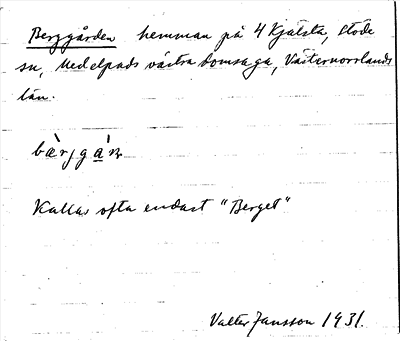 Berggården hemman på 4 Kjälsta, Stöde
sn, Medelpads västra domsaga, Västernorrlands
län.
Kallas ofta endast "Berget"
Valter Jansson 1931.